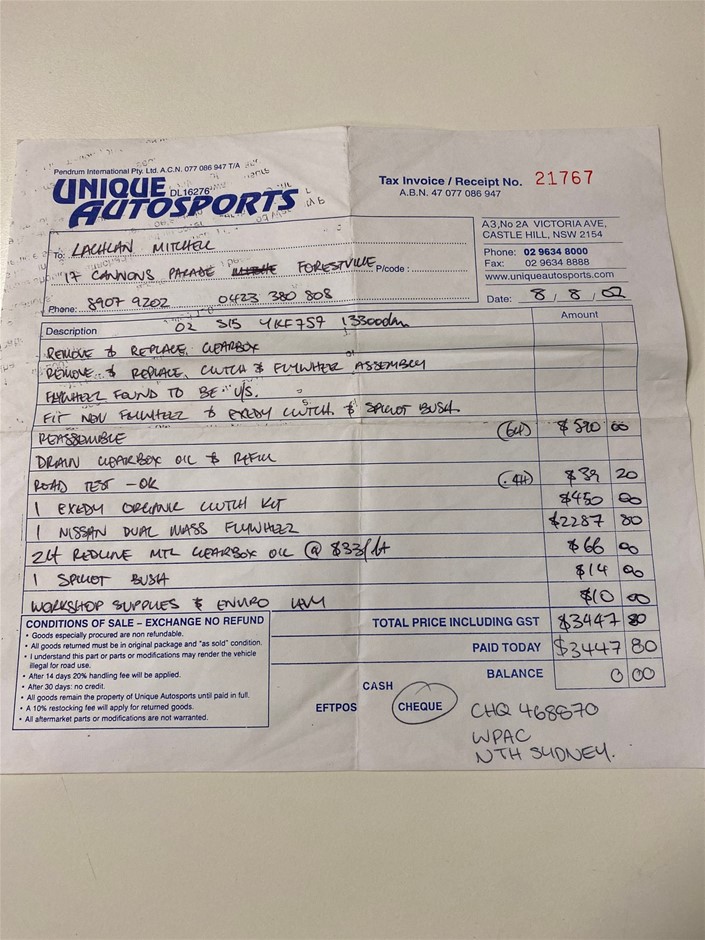 Pendrum International Pty. Ltd. A.C.N. 077 086 947 T/A
UNIQUE
AUTOSPORTS
DL16276
Tax Invoice / Receipt No. 21767
A.B.N. 47 077 086 947
A3,No 2A VICTORIA AVE,
CASTLE HILL, NSW 2154
Phone: 02 9634 8000
Fax: 02 9634 8888
www.uniqueautosports.com
Date: 8 / 8 / 02
To: LACHLAN MITCHELL
17 CANNONS PARADE FORESTVILLE P/code :
Phone: 8907 9202 0423 380 808
Description 02 S15 YKF759 13300km Amount
REMOVE & REPLACE GEARBOX
REMOVE & REPLACE CLUTCH & FLYWHEEL ASSEMBLY
FLYWHEEL FOUND TO BE U/S.
FIT NEW FLYWHEEL & EXEDY CLUTCH & SPIGOT BUSH
REASSEMBLE (6H) $590 00
DRAIN GEARBOX OIL & REFILL
ROAD TEST - OK (.4H) $39 20
1 EXEDY ORGANIC CLUTCH KIT $450 00
1 NISSAN DUAL MASS FLYWHEEL $2287 80
2LT REDLINE MTL GEARBOX OIL @ $33/Lt $66 00
1 SPIGOT BUSH $14 00
WORKSHOP SUPPLIES & ENVIRO LEVY $10 00
TOTAL PRICE INCLUDING GST $3447 80
PAID TODAY $3447 80
BALANCE 0 00
CONDITIONS OF SALE – EXCHANGE NO REFUND
• Goods especially procured are non refundable.
• All goods returned must be in original package and "as sold" condition.
• I understand this part or parts or modifications may render the vehicle
illegal for road use.
• After 14 days 20% handling fee will be applied.
• After 30 days: no credit.
• All goods remain the property of Unique Autosports until paid in full.
• A 10% restocking fee will apply for returned goods.
• All aftermarket parts or modifications are not warranted.
CASH
EFTPOS CHEQUE
CHQ 468870
WPAC
NTH SYDNEY.